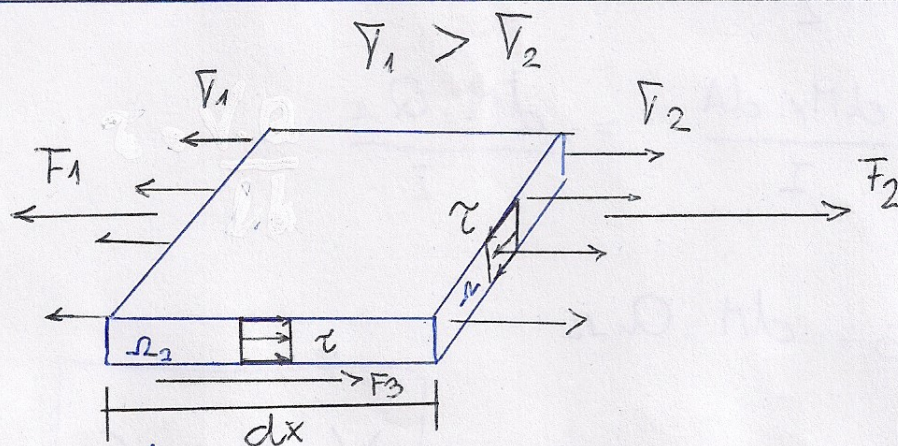 σ₁ > σ₂
σ₁
σ₂
F1
F₂
τ
Ω
Ω₂ τ
F3
dx